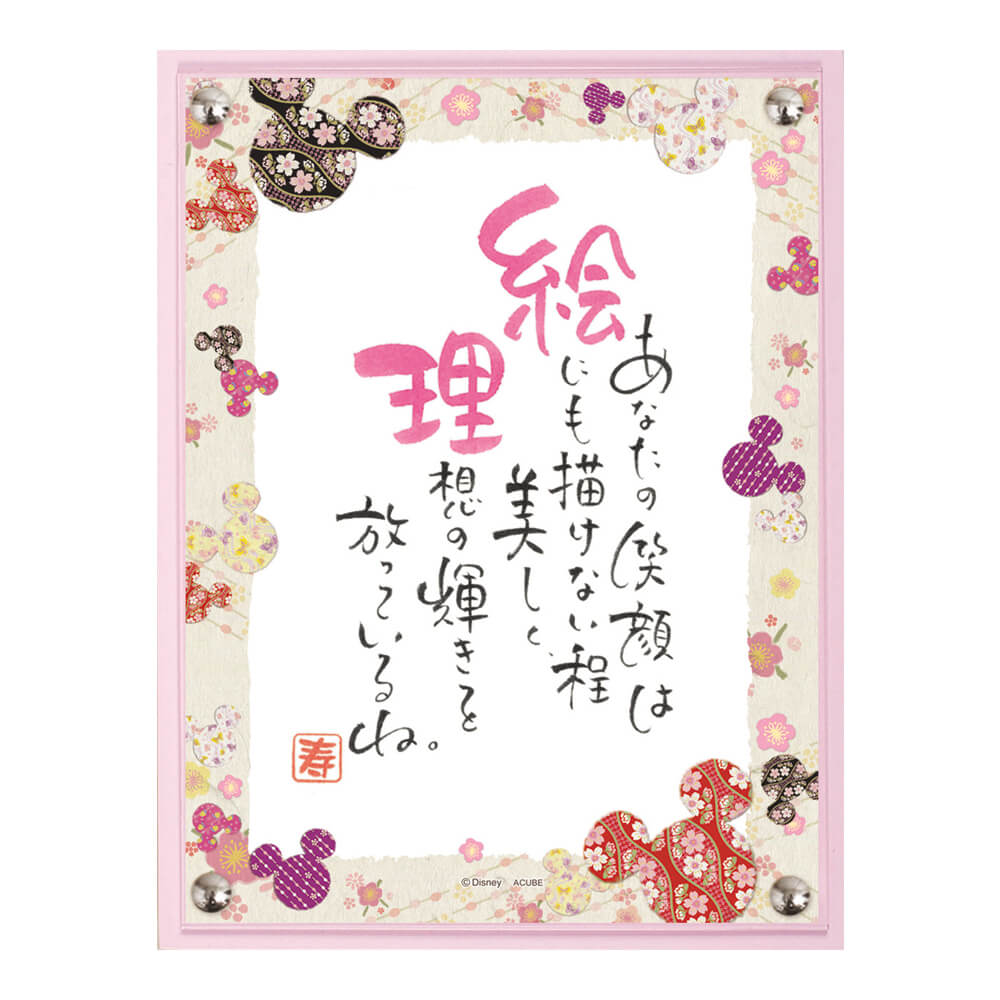 あなたの笑顔は
絵にも描けない程
美しく、
理想の輝きを
放っているね。
寿
© Disney ACUBE